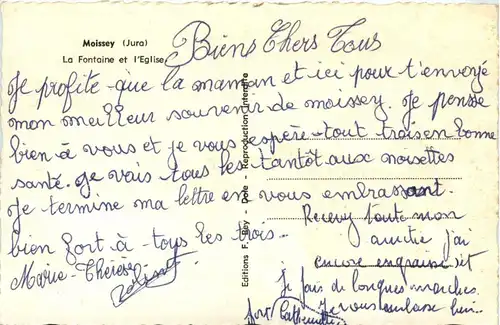 Moissey (Jura)
La Fontaine et l'Eglise
Biens Chers Tous
Je profite que la maman et ici pour t'envoyé
mon meilleur souvenir de moissey. Je pense
bien à vous et je vous espère tout trois en bonne
santé. Je vais tous les tantôt aux noisettes
Je termine ma lettre en vous embrassant.
bien fort à tous les trois...
Marie-Thérèse
Recevez toute mon
amitié j'ai
encore engraissé
Je fais de longues marches.
Je vous embrasse bien..
Editions F. Rey - Dole - Reproduction interdite